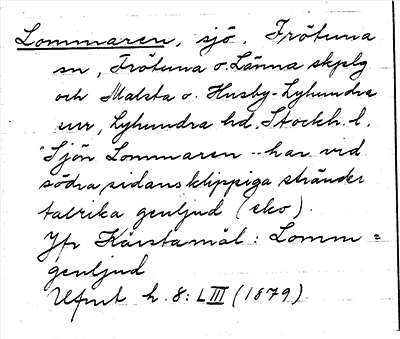 Lommaren, sjö. Frötuna
sn, Frötuna o. Länna skplg
och Malsta o. Husby-Lyhundra
snr, Lyhundra hd, Stockh. l.
"Sjön Lommaren -- har vid
södra sidans klippiga stränder
talrika genljud (eko).
Jfr Kärstamål: Lomm=
genljud
Ufmt h. 8: LIII (1879)